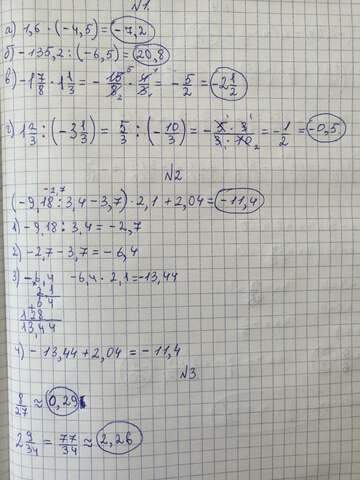 №1.
а) 1,6 · (-4,5) = -7,2
б) -135,2 : (-6,5) = 20,8
в) -1 7/8 · 1 1/3 = - 15/8 · 4/3 = - 5/2 = -2 1/2
г) 1 2/3 : (-3 1/3) = 5/3 : (- 10/3) = - 5 · 3/3 · 10 = - 1/2 = -0,5
№2
-2,7
(-9,18 : 3,4 - 3,7) · 2,1 + 2,04 = -11,4
1) -9,18 : 3,4 = -2,7
2) -2,7 - 3,7 = -6,4
3) -6,4 -6,4 · 2,1 = -13,44
2 1
64
128
13,44
4) -13,44 + 2,04 = -11,4
№3
8/27 ≈ 0,29
2 9/34 = 77/34 ≈ 2,26